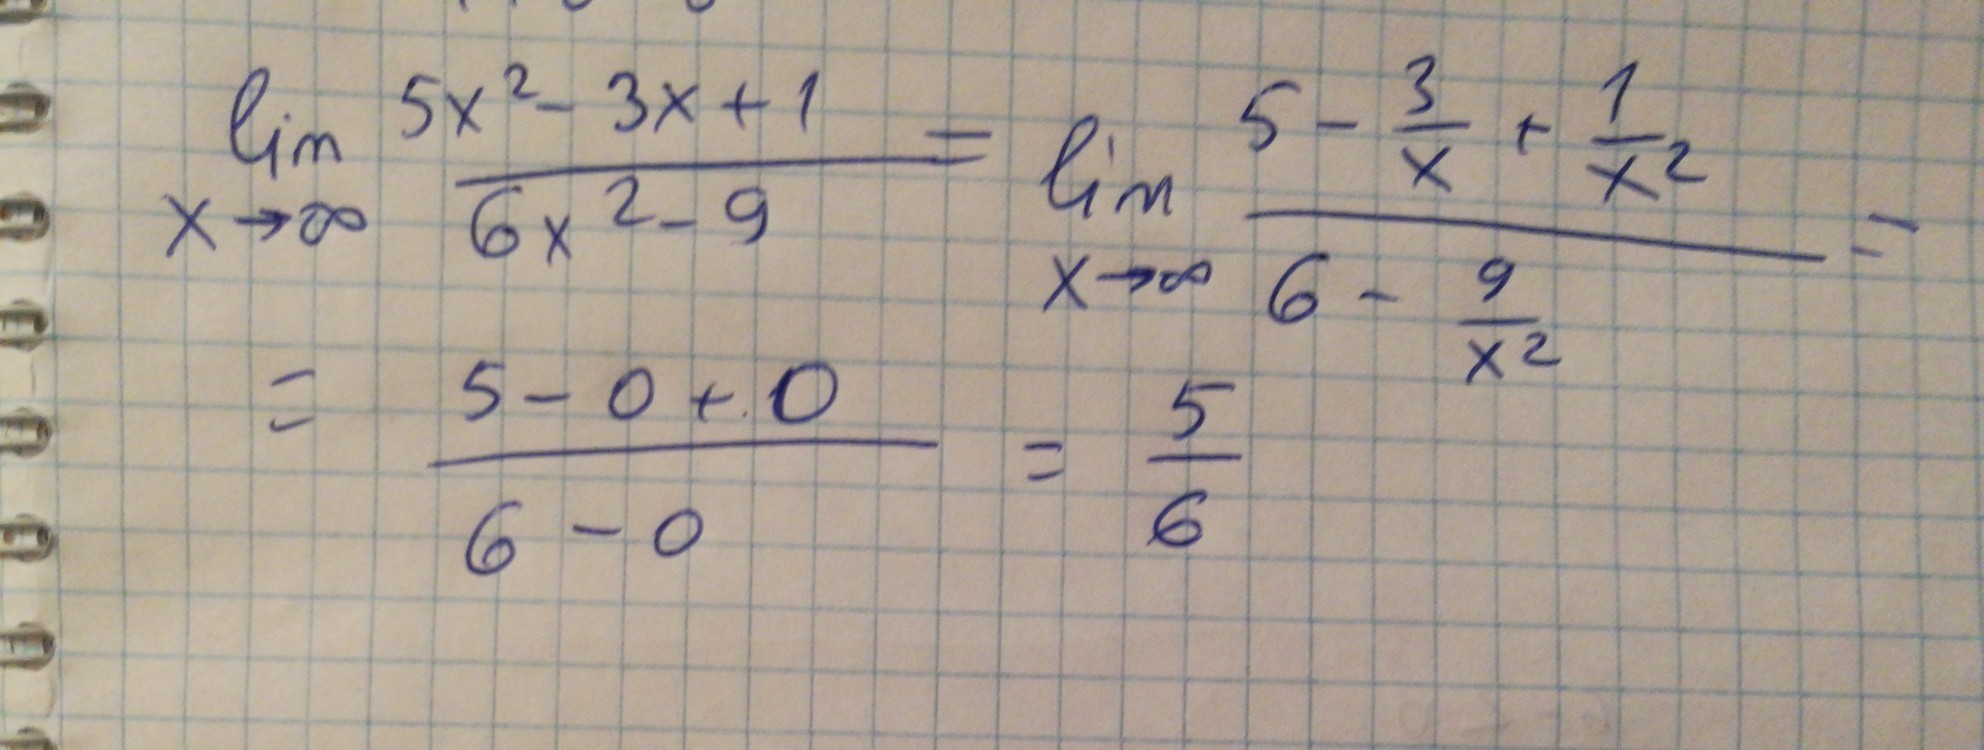 lim x→∞ (5x² - 3x + 1)/(6x² - 9) = lim x→∞ (5 - 3/x + 1/x²)/(6 - 9/x²) =
= (5 - 0 + 0)/(6 - 0) = 5/6